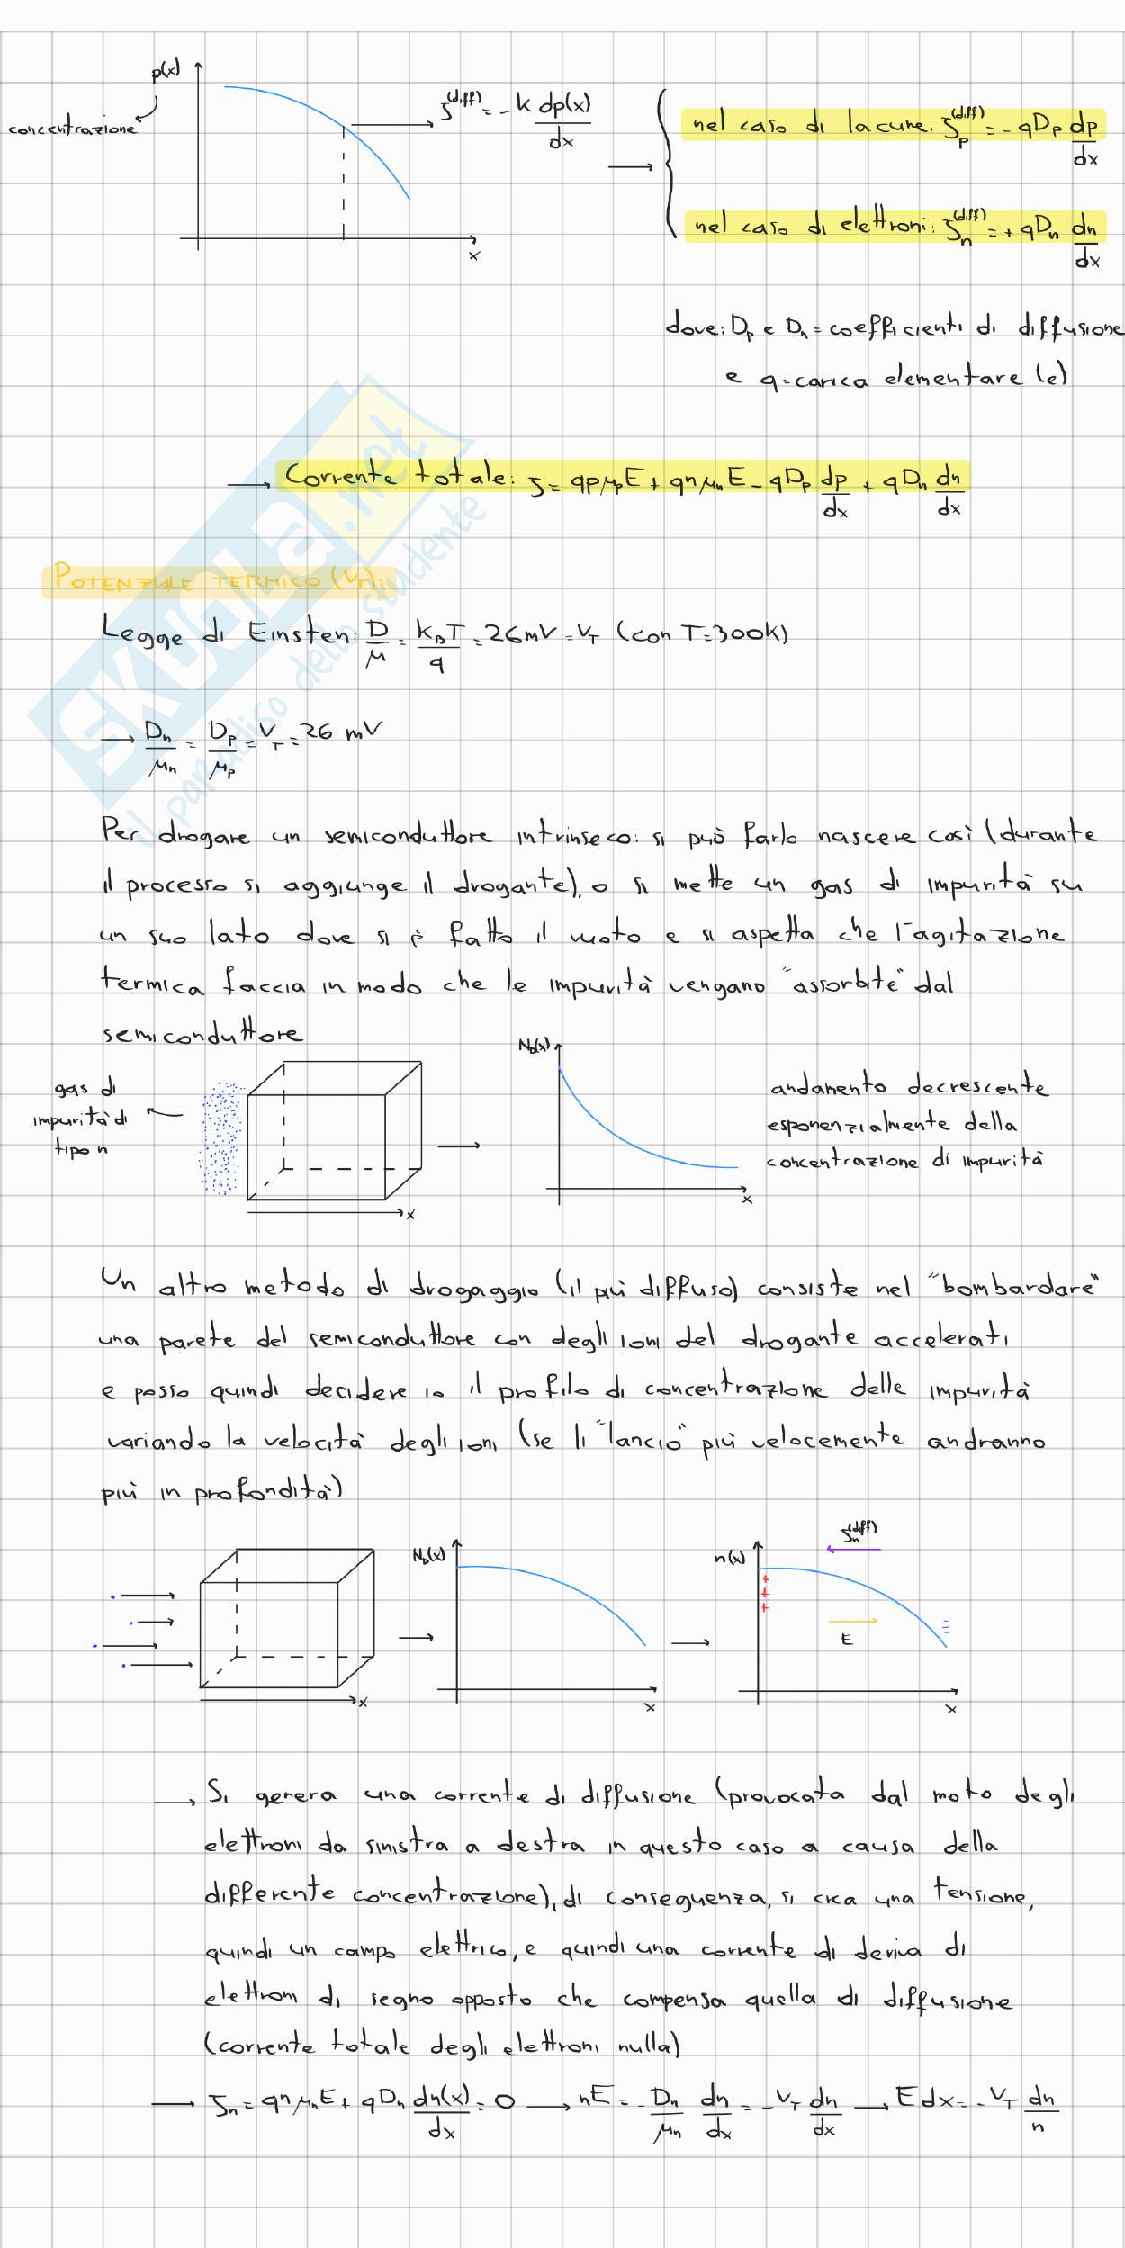 p(x)
concentrazione
x
J^(diff) = -k dp(x)/dx
nel caso di lacune: J_p^(diff) = -qD_p dp/dx
nel caso di elettroni: J_n^(diff) = +qD_n dn/dx
dove: D_p e D_n = coefficienti di diffusione
e q = carica elementare (e)
→ Corrente totale: J = qpμ_pE + qnμ_nE - qD_p dp/dx + qD_n dn/dx
POTENZIALE TERMICO (V_T):
Legge di Einsten: D/μ = k_BT/q = 26mV = V_T (con T=300K)
→ D_n/μ_n = D_p/μ_p = V_T = 26 mV
Per drogare un semiconduttore intrinseco: si può farlo nascere così (durante
il processo si aggiunge il drogante), o si mette un gas di impurità su
un suo lato dove si è fatto il vuoto e si aspetta che l'agitazione
termica faccia in modo che le impurità vengano "assorbite" dal
semiconduttore
gas di
impurità di
tipo n
x
N_D(x)
x
andamento decrescente
esponenzialmente della
concentrazione di impurità
Un altro metodo di drogaggio (il più diffuso) consiste nel "bombardare"
una parete del semiconduttore con degli ioni del drogante accelerati
e posso quindi decidere io il profilo di concentrazione delle impurità
variando la velocità degli ioni (se li "lancio" più velocemente andranno
più in profondità)
x
N_D(x)
x
n(x)
J_n^(diff)
+
+
+
E
x
→ Si genera una corrente di diffusione (provocata dal moto degli
elettroni da sinistra a destra in questo caso a causa della
differente concentrazione), di conseguenza, si crea una tensione,
quindi un campo elettrico, e quindi una corrente di deriva di
elettroni di segno opposto che compensa quella di diffusione
(corrente totale degli elettroni nulla)
→ J_n = qnμ_nE + qD_n dn(x)/dx = 0 → nE = -D_n/μ_n dn/dx = -V_T dn/dx → E dx = -V_T dn/n
SKUOLA.net
il paradiso dello studente